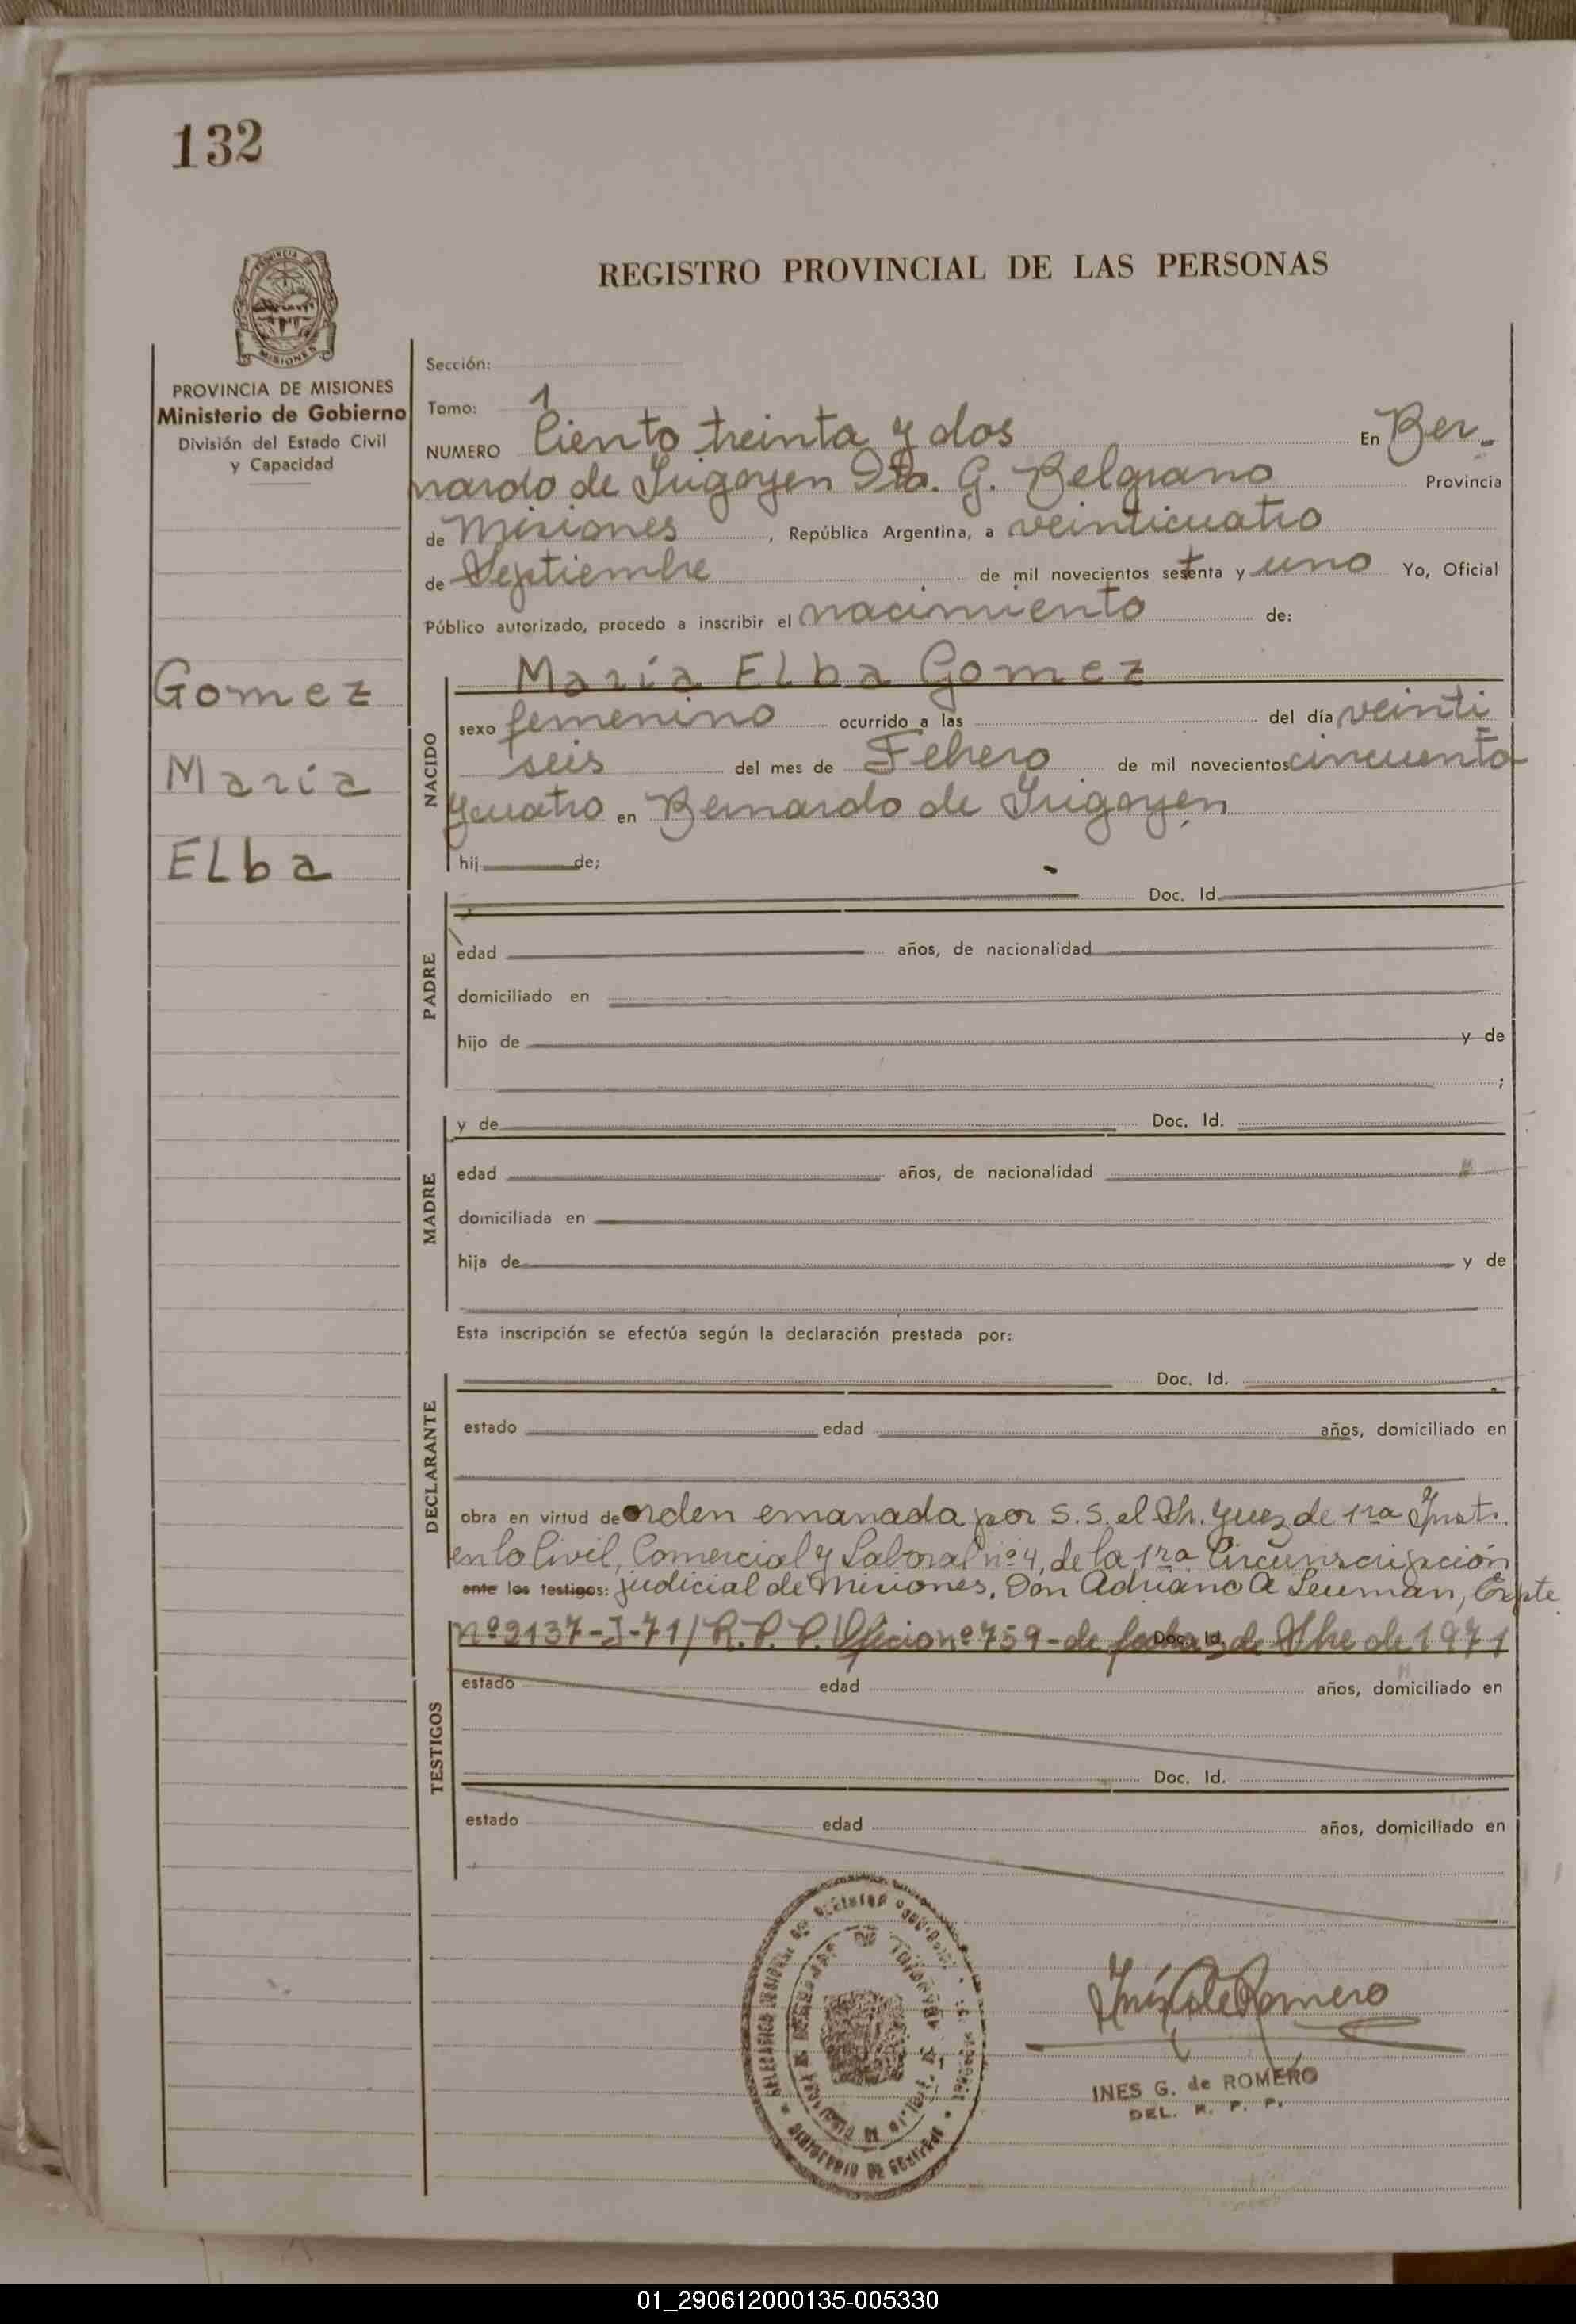 132
REGISTRO PROVINCIAL DE LAS PERSONAS
PROVINCIA DE MISIONES
Ministerio de Gobierno
División del Estado Civil
y Capacidad
Gomez
María
ELba
Sección:
Tomo: 1
NUMERO Ciento treinta y dos En Ber-
nardo de Irigoyen Dto. G. Belgrano Provincia
de Misiones, República Argentina, a veinticuatro
de Septiembre de mil novecientos setenta y uno Yo, Oficial
Público autorizado, procedo a inscribir el nacimiento de:
María ELba Gomez
NACIDO
sexo femenino ocurrido a las del día veinti
seis del mes de Febrero de mil novecientos cincuenta
y cuatro en Bernardo de Irigoyen
hij de;
PADRE
Doc. Id.
edad años, de nacionalidad
domiciliado en
hijo de y de
;
MADRE
y de Doc. Id.
edad años, de nacionalidad
domiciliada en
hija de y de
Esta inscripción se efectúa según la declaración prestada por:
DECLARANTE
Doc. Id.
estado edad años, domiciliado en
obra en virtud de orden emanada por S.S. el Sr. Juez de 1ra Inst.
en lo Civil, Comercial y Laboral nº 4, de la 1ra Circunscripción
ante los testigos: judicial de Misiones, Don Adriano A Leuman, Expte
nº 2137-J-71/R.P.P. Oficio nº 759-de fecha de Sbre de 1971
Doc. Id.
TESTIGOS
estado edad años, domiciliado en
Doc. Id.
estado edad años, domiciliado en
Inés G de Romero
INES G. de ROMERO
DEL. R. P. P.
01_290612000135-005330